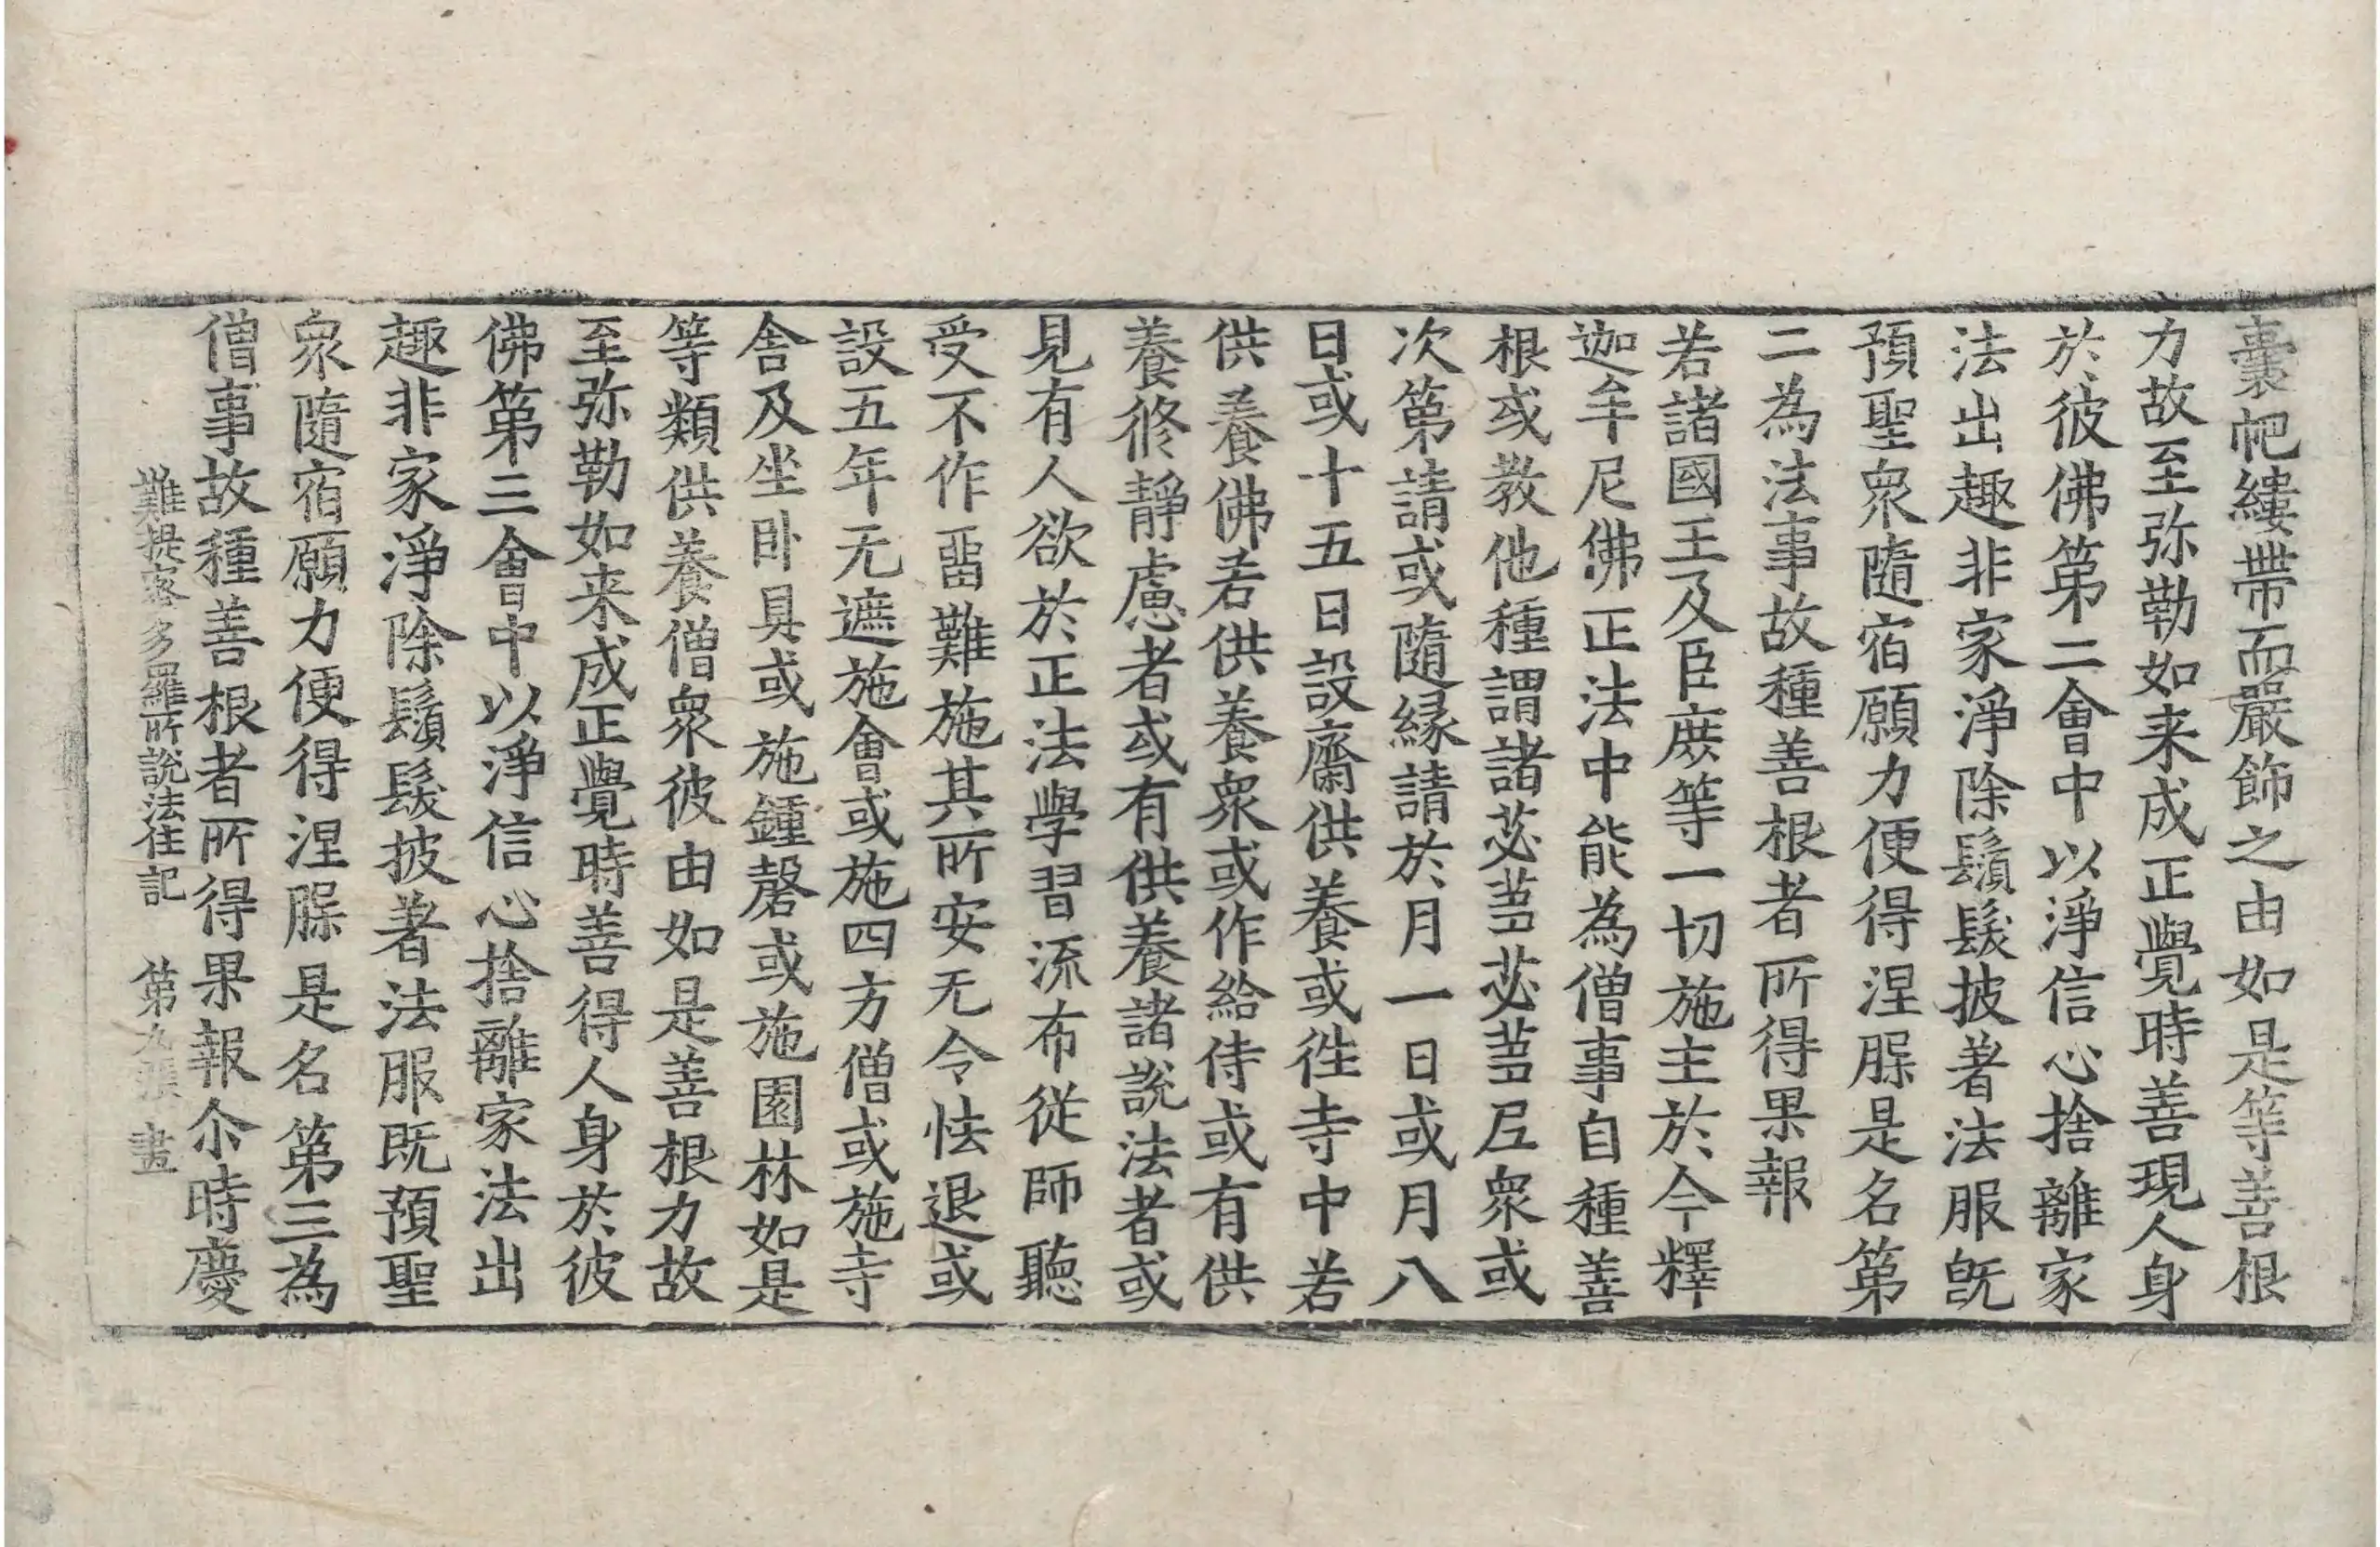 囊帊縷帶而嚴飾之由如是等善根
力故至弥勒如来成正覺時善現人身
於彼佛第二會中以淨信心捨離家
法出趣非家淨除鬚髮披著法服旣
預聖衆隨宿願力便得涅脲是名第
二為法事故種善根者所得果報
若諸國王及臣庶等一切施主於今釋
迦牟尼佛正法中能為僧事自種善
根或教他種謂諸苾蒭苾蒭尼衆或
次第請或隨緣請於月一日或月八
日或十五日設齋供養或徃寺中若
供養佛若供養衆或作給侍或有供
養修靜慮者或有供養諸說法者或
見有人欲於正法學習流布從師聽
受不作畱難施其所安无令怯退或
設五年无遮施會或施四方僧或施寺
舎及坐卧具或施鍾磬或施園林如是
等類供養僧衆彼由如是善根力故
至弥勒如来成正覺時善得人身於彼
佛第三會中以淨信心捨離家法出
趣非家淨除鬚髮披著法服既預聖
衆隨宿願力便得涅脲是名第三為
僧事故種善根者所得果報尒時慶
難提蜜多羅所說法住記 第九張 畫